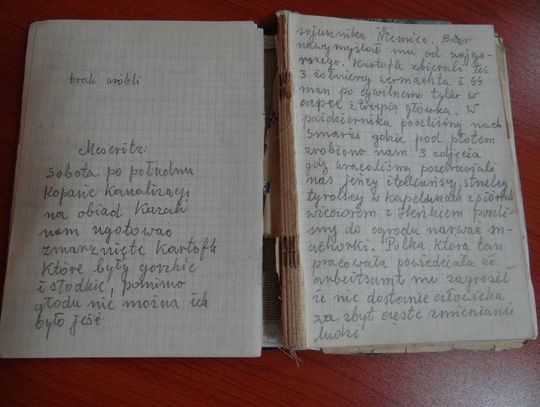 brak wróbli
Meseritz:
Sobota po południu
Kopanie kanalizacji
na obiad Kazali
nam ugotować
zmarznięte Kartofle
Które były gorzkie
i słodkie, pomimo
głodu nie można ich
było jeść
sojusznika Niemiec.
nawymyślał mu od najgo-
rszego. Kartofle zbierali też
3 żołnierzy wermachtu i SS
man po cywilnemu tylko w
czapce z trupią główką. W
październiku poszliśmy nach
Smarzi gdzie pod płotem
zrobiono nam 3 zdjęcia
gdy wracaliśmy pozdrawiali
nas jeńcy italiańscy, strzelcy
tyrolscy w kapeluszach z piórkiem
wieczorem z Heńkiem poszli-
śmy do ogrodu narwać m-
achorki. Polka która tam
pracowała powiedziała że
arbeitsamt mu zagroził
że nie dostanie człowieka
za zbyt częste zmienianie
ludzi